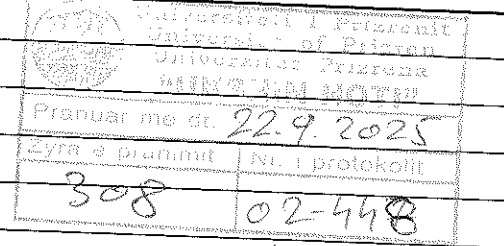 Universiteti i Prizrenit
University of Prizren
Univerzitet Prizrena
"UKSHIN HOTI"
Pranuar me dt. 22.9.2025
Zyra e pranimit Nr. i protokollit
308 02-448